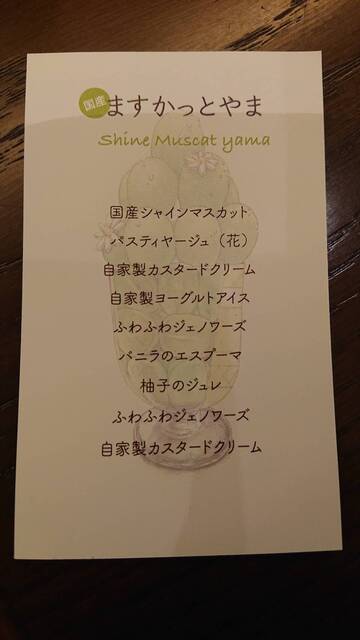 国産
ますかっとやま
Shine Muscat yama
国産シャインマスカット
パスティヤージュ（花）
自家製カスタードクリーム
自家製ヨーグルトアイス
ふわふわジェノワーズ
バニラのエスプーマ
柚子のジュレ
ふわふわジェノワーズ
自家製カスタードクリーム